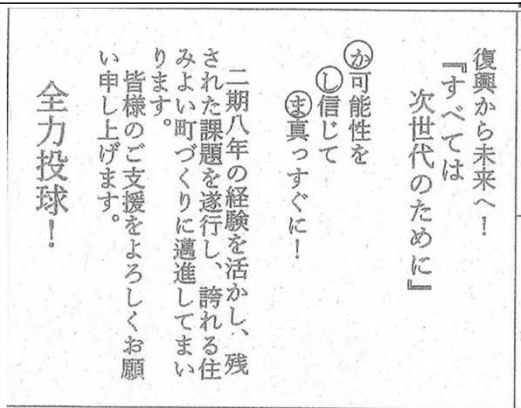 復興から未来へ！
『すべては
次世代のために』
か可能性を
し信じて
ま真っすぐに！
二期八年の経験を活かし、残
された課題を遂行し、誇れる住
みよい町づくりに邁進してまい
ります。
皆様のご支援をよろしくお願
い申し上げます。
全力投球！